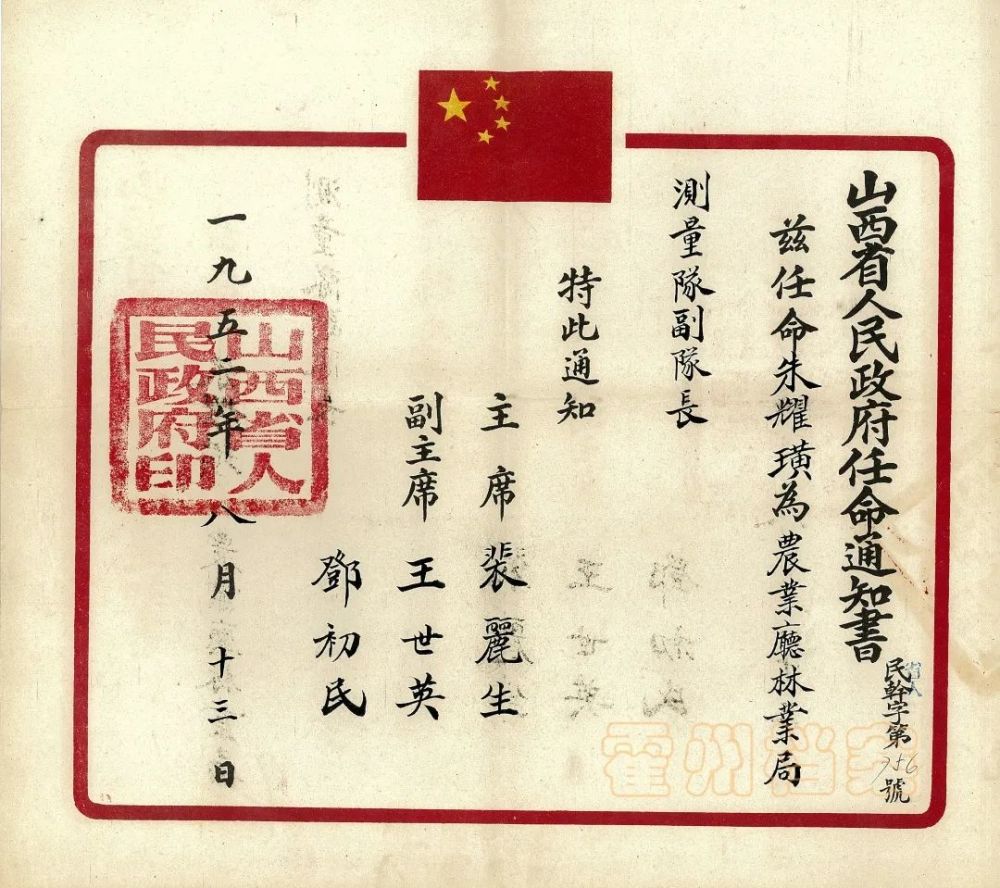 山西省人民政府任命通知書
省人
民幹字第756號
茲任命朱耀璜為農業廳林業局
測量隊副隊長
特此通知
主席 裴麗生
副主席 王世英
鄧初民
一九五二年八月十三日
山西省人
民政府印
霍州档案